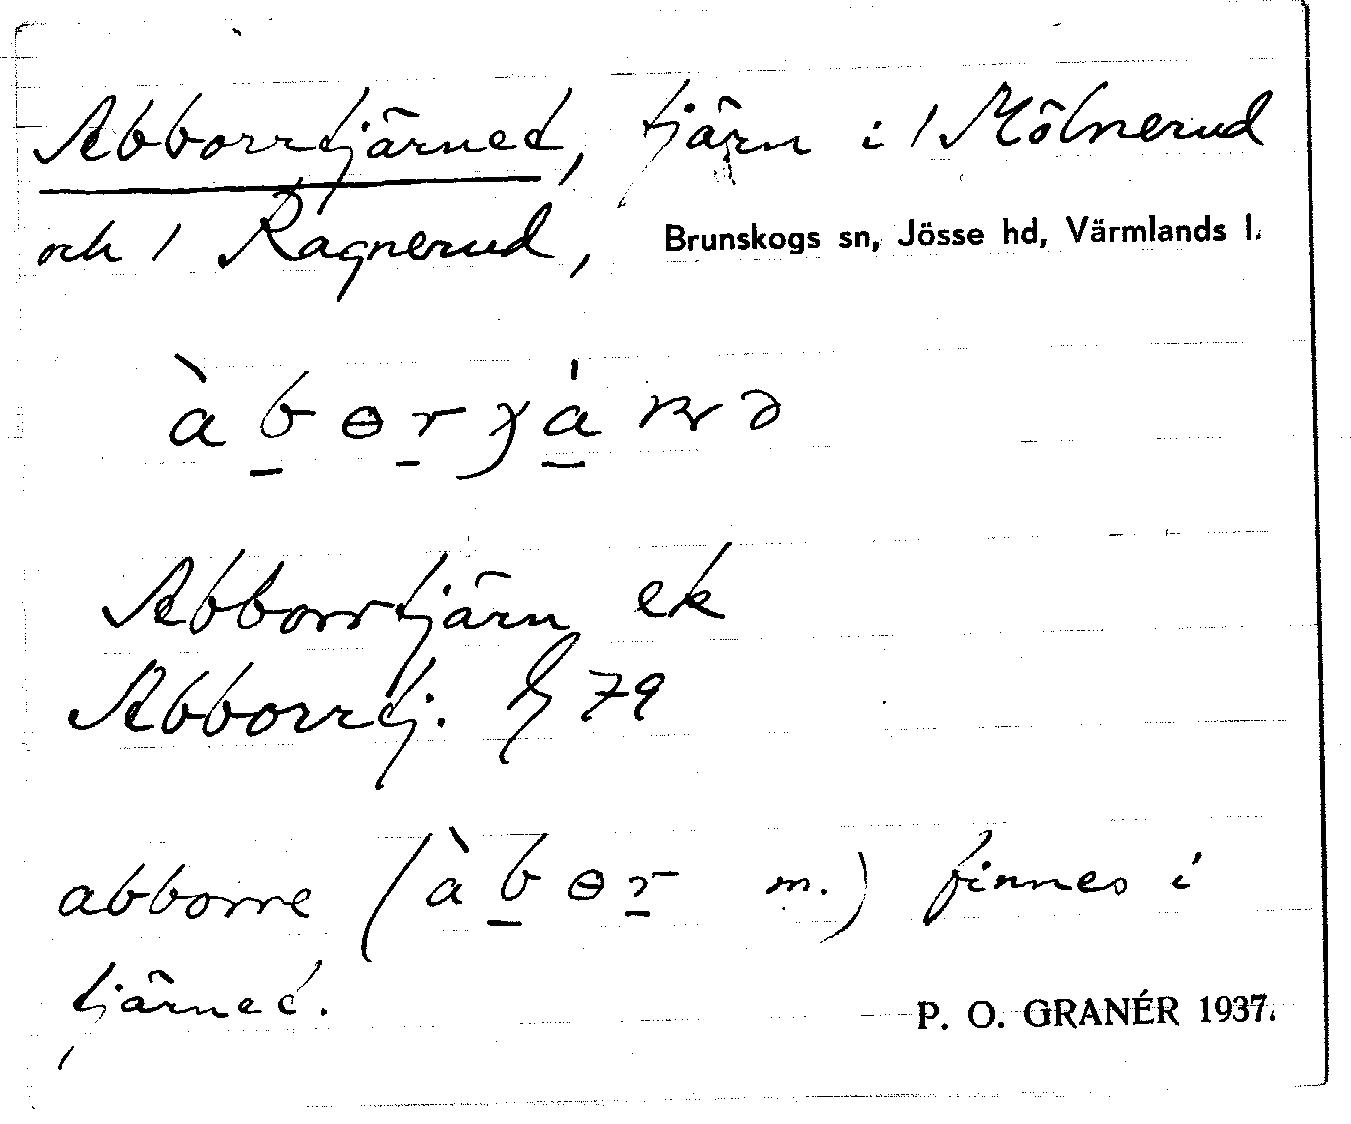 Abborrtjärnet, tjärn i 1 Mölnerud
och 1 Ragnerud, Brunskogs sn, Jösse hd, Värmlands l.
Abborrtjärn ek
Abborrtj. 79
abborre ( m.) finnes i
tjärnet.
P. O. GRANÉR 1937.